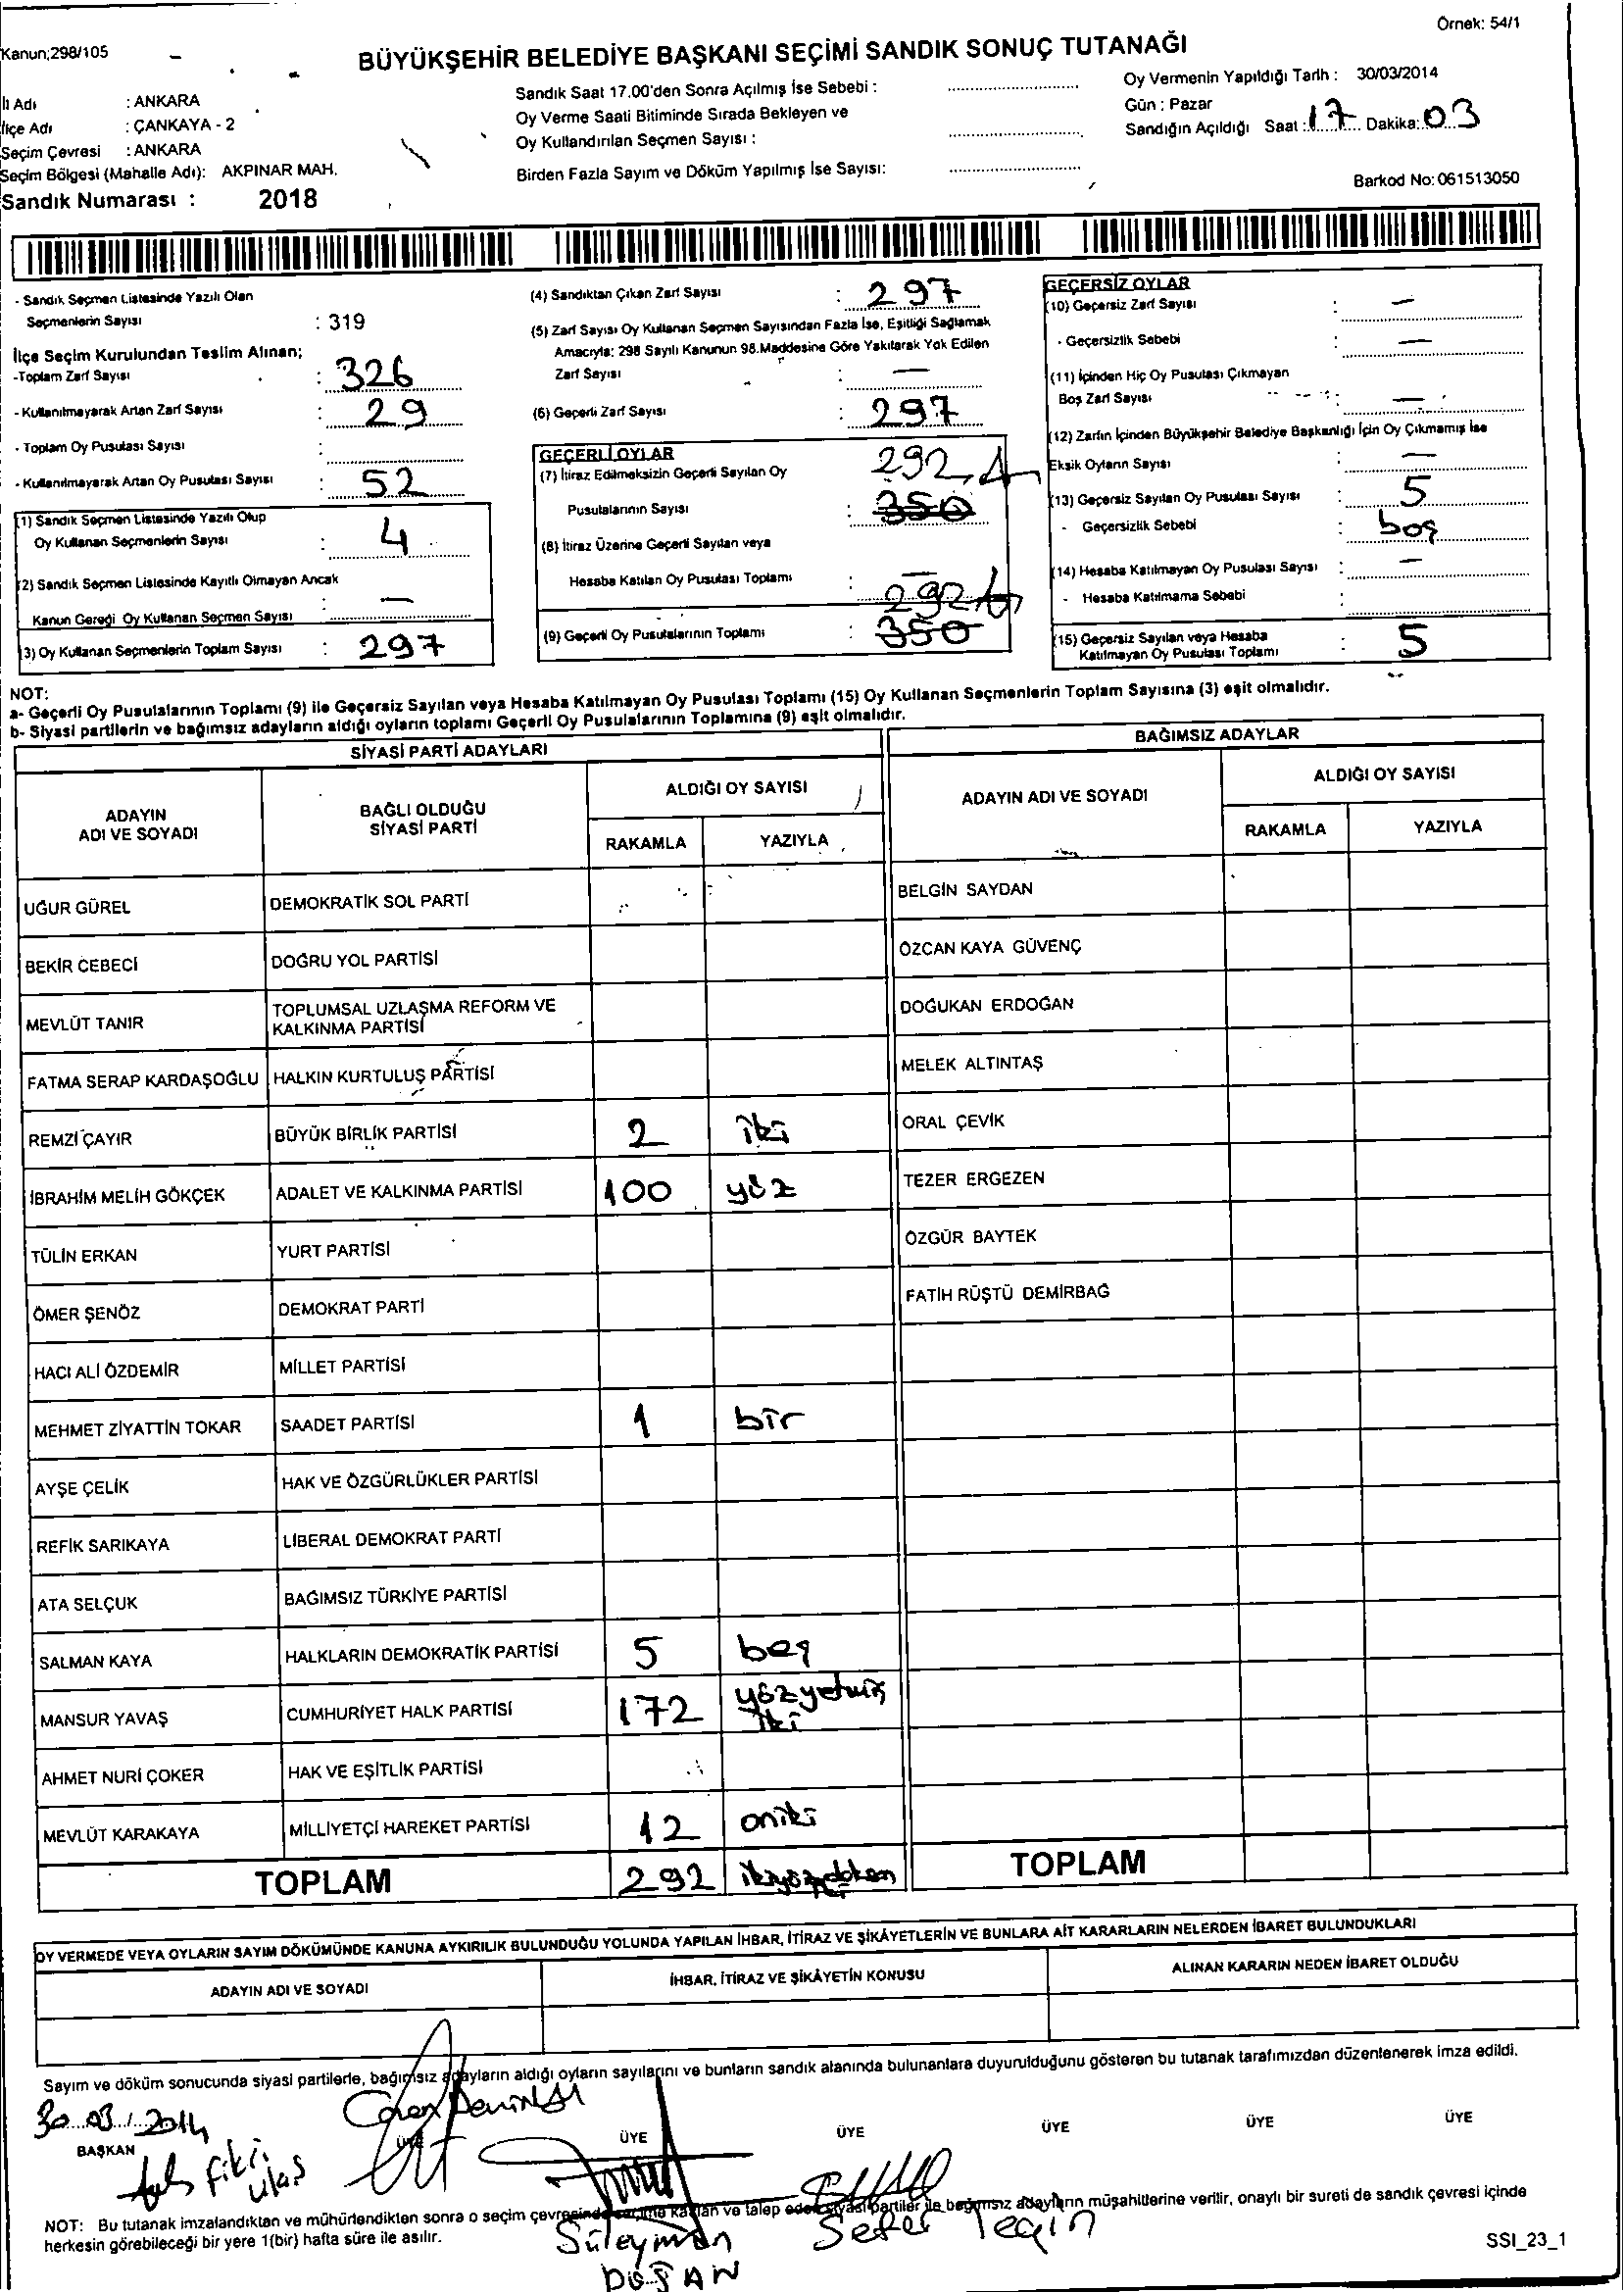 Örnek: 54/1
Kanun;298/105
BÜYÜKŞEHİR BELEDİYE BAŞKANI SEÇİMİ SANDIK SONUÇ TUTANAĞI
İl Adı : ANKARA
İlçe Adı : ÇANKAYA - 2
Seçim Çevresi : ANKARA
Seçim Bölgesi (Mahalle Adı): AKPINAR MAH.
Sandık Numarası : 2018
Sandık Saat 17.00'den Sonra Açılmış İse Sebebi :
Oy Verme Saati Bitiminde Sırada Bekleyen ve
Oy Kullandırılan Seçmen Sayısı :
Birden Fazla Sayım ve Döküm Yapılmış İse Sayısı:
Oy Vermenin Yapıldığı Tarih : 30/03/2014
Gün : Pazar
Sandığın Açıldığı Saat : 17 Dakika: 03
Barkod No: 061513050
- Sandık Seçmen Listesinde Yazılı Olan
Seçmenlerin Sayısı : 319
İlçe Seçim Kurulundan Teslim Alınan;
-Toplam Zarf Sayısı : 326
- Kullanılmayarak Artan Zarf Sayısı : 29
- Toplam Oy Pusulası Sayısı :
- Kullanılmayarak Artan Oy Pusulası Sayısı : 52
(1) Sandık Seçmen Listesinde Yazılı Olup
Oy Kullanan Seçmenlerin Sayısı : 4
(2) Sandık Seçmen Listesinde Kayıtlı Olmayan Ancak
Kanun Gereği Oy Kullanan Seçmen Sayısı : —
(3) Oy Kullanan Seçmenlerin Toplam Sayısı : 297
(4) Sandıktan Çıkan Zarf Sayısı : 297
(5) Zarf Sayısı Oy Kullanan Seçmen Sayısından Fazla İse, Eşitliği Sağlamak
Amacıyla: 298 Sayılı Kanunun 98.Maddesine Göre Yakılarak Yok Edilen
Zarf Sayısı : —
(6) Geçerli Zarf Sayısı : 297
GEÇERLİ OYLAR
(7) İtiraz Edilmeksizin Geçerli Sayılan Oy 292
Pusulalarının Sayısı : 350
(8) İtiraz Üzerine Geçerli Sayılan veya
Hesaba Katılan Oy Pusulası Toplamı : —
292
(9) Geçerli Oy Pusulalarının Toplamı : 350
GEÇERSİZ OYLAR
(10) Geçersiz Zarf Sayısı : —
- Geçersizlik Sebebi : —
(11) İçinden Hiç Oy Pusulası Çıkmayan
Boş Zarf Sayısı : —
(12) Zarfın İçinden Büyükşehir Belediye Başkanlığı İçin Oy Çıkmamış İse
Eksik Oyların Sayısı : —
(13) Geçersiz Sayılan Oy Pusulası Sayısı : 5
- Geçersizlik Sebebi : boş
(14) Hesaba Katılmayan Oy Pusulası Sayısı : —
- Hesaba Katılmama Sebebi :
(15) Geçersiz Sayılan veya Hesaba
Katılmayan Oy Pusulası Toplamı : 5
NOT:
a- Geçerli Oy Pusulalarının Toplamı (9) ile Geçersiz Sayılan veya Hesaba Katılmayan Oy Pusulası Toplamı (15) Oy Kullanan Seçmenlerin Toplam Sayısına (3) eşit olmalıdır.
b- Siyasi partilerin ve bağımsız adayların aldığı oyların toplamı Geçerli Oy Pusulalarının Toplamına (9) eşit olmalıdır.
SİYASİ PARTİ ADAYLARI
ADAYIN
ADI VE SOYADI
BAĞLI OLDUĞU
SİYASİ PARTİ
ALDIĞI OY SAYISI
RAKAMLA YAZIYLA
UĞUR GÜREL DEMOKRATİK SOL PARTİ
BEKİR CEBECİ DOĞRU YOL PARTİSİ
MEVLÜT TANIR TOPLUMSAL UZLAŞMA REFORM VE
KALKINMA PARTİSİ
FATMA SERAP KARDAŞOĞLU HALKIN KURTULUŞ PARTİSİ
REMZİ ÇAYIR BÜYÜK BİRLİK PARTİSİ 2 iki
İBRAHİM MELİH GÖKÇEK ADALET VE KALKINMA PARTİSİ 100 yüz
TÜLİN ERKAN YURT PARTİSİ
ÖMER ŞENÖZ DEMOKRAT PARTİ
HACI ALİ ÖZDEMİR MİLLET PARTİSİ
MEHMET ZİYATTİN TOKAR SAADET PARTİSİ 1 bir
AYŞE ÇELİK HAK VE ÖZGÜRLÜKLER PARTİSİ
REFİK SARIKAYA LİBERAL DEMOKRAT PARTİ
ATA SELÇUK BAĞIMSIZ TÜRKİYE PARTİSİ
SALMAN KAYA HALKLARIN DEMOKRATİK PARTİSİ 5 beş
MANSUR YAVAŞ CUMHURİYET HALK PARTİSİ 172 yüzyetmiş
iki
AHMET NURİ ÇOKER HAK VE EŞİTLİK PARTİSİ
MEVLÜT KARAKAYA MİLLİYETÇİ HAREKET PARTİSİ 12 oniki
TOPLAM 292
BAĞIMSIZ ADAYLAR
ADAYIN ADI VE SOYADI
ALDIĞI OY SAYISI
RAKAMLA YAZIYLA
BELGİN SAYDAN
ÖZCAN KAYA GÜVENÇ
DOĞUKAN ERDOĞAN
MELEK ALTINTAŞ
ORAL ÇEVİK
TEZER ERGEZEN
ÖZGÜR BAYTEK
FATİH RÜŞTÜ DEMİRBAĞ
TOPLAM
OY VERMEDE VEYA OYLARIN SAYIM DÖKÜMÜNDE KANUNA AYKIRILIK BULUNDUĞU YOLUNDA YAPILAN İHBAR, İTİRAZ VE ŞİKÂYETLERİN VE BUNLARA AİT KARARLARIN NELERDEN İBARET BULUNDUKLARI
ADAYIN ADI VE SOYADI İHBAR, İTİRAZ VE ŞİKÂYETİN KONUSU ALINAN KARARIN NEDEN İBARET OLDUĞU
Sayım ve döküm sonucunda siyasi partilerle, bağımsız adayların aldığı oyların sayılarını ve bunların sandık alanında bulunanlara duyurulduğunu gösteren bu tutanak tarafımızdan düzenlenerek imza edildi.
30.03.2014
BAŞKAN ÜYE ÜYE ÜYE ÜYE ÜYE ÜYE
Fikri
Ulaş
Süleyman
DOĞAN
Sefer Tegin
NOT: Bu tutanak imzalandıktan ve mühürlendikten sonra o seçim çevresinde seçime katılan ve talep eden siyasi partiler ile bağımsız adayların müşahitlerine verilir, onaylı bir sureti de sandık çevresi içinde
herkesin görebileceği bir yere 1(bir) hafta süre ile asılır.
SSI_23_1